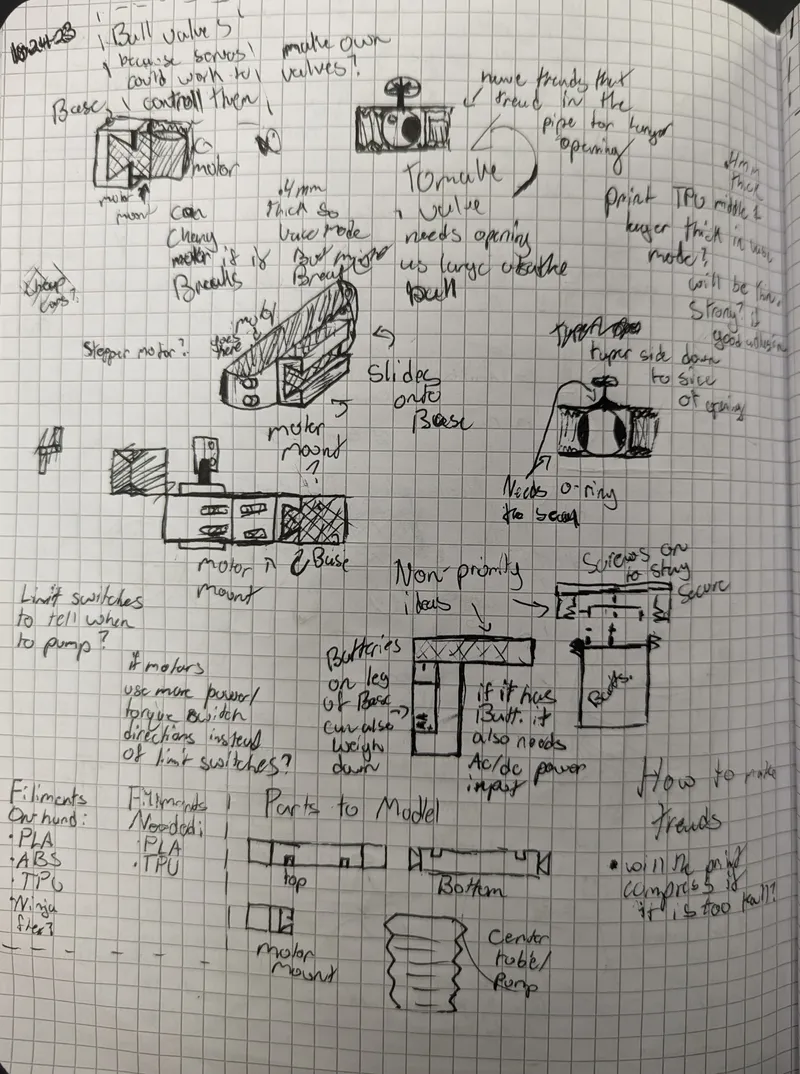 10-24-23
Ball valves
because servos
could work to
controll them
make own
valves?
Base
motor
motor
mount
have treads that
tread in the
pipe for larger
opening
can
Chang
motor if it
Breaks
.4mm
thick so
vase mode
But might
Break
To make
valve
needs opening
as large as the
ball
.4mm
thick
print TPU middle
larger thick in vase
mode?
will be thin,
Strong? if
good
Cheap
Stepper motor?
motor
goes
there
Slides
onto
Base
motor
mount
taper side down
to size
of opening
Needs o-ring
to seal
motor
mount
Base
Non-priority
ideas
Screws on
to stay
Secure
Limit switches
to tell when
to pump?
Batteries
on leg
of Base
can also
weigh
down
if it has
Batt. it
also needs
Ac/dc power
input
Batts.
if motors
use more power/
torque switch
directions instead
of limit switches?
Filiments
On hand:
• PLA
• ABS
• TPU
• Ninja
flex?
Filiments
Needed:
• PLA
• TPU
Parts to Model
top
Bottom
motor
mount
Center
tube/
Pump
How to make
treads
• will the print
compress if
it is too tall?